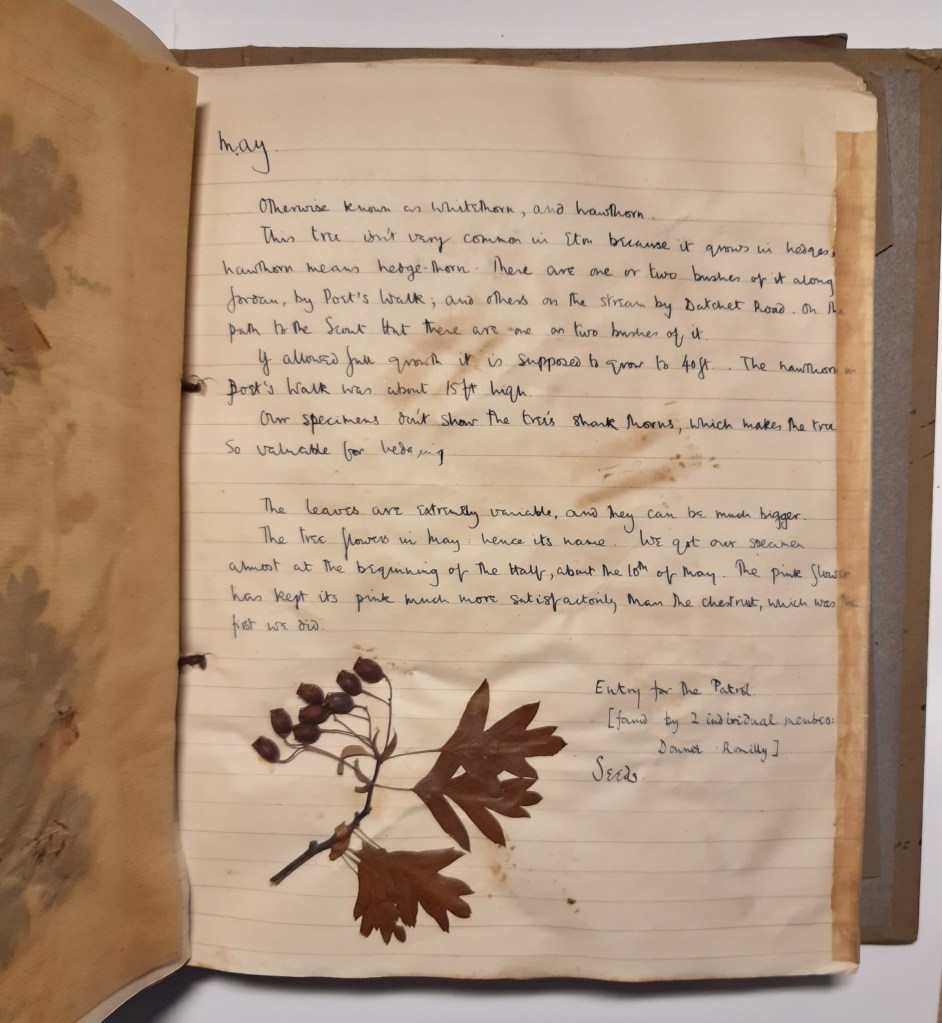 May
Otherwise known as Whitethorn, and hawthorn.
This tree isn't very common in Eton because it grows in hedges;
hawthorn means hedge-thorn. There are one or two bushes of it along
Jordan, by Poet's Walk; and others on the stream by Datchet Road. On the
path to the Scout Hut there are one or two bushes of it.
If allowed full growth it is supposed to grow to 40ft. The hawthorn in
Poet's Walk was about 15ft high.
Our specimens don't show the tree's shark thorns, which makes the tree
so valuable for hedging
The leaves are extremely variable, and they can be much bigger.
The tree flowers in May: hence its name. We got our specimen
almost at the beginning of the Half, about the 10th of May. The pink flower
has kept its pink much more satisfactorily than the chestnut, which was the
first we did.
Entry for the Patrol
[found by 2 individual members:
Romilly]
Seeds.